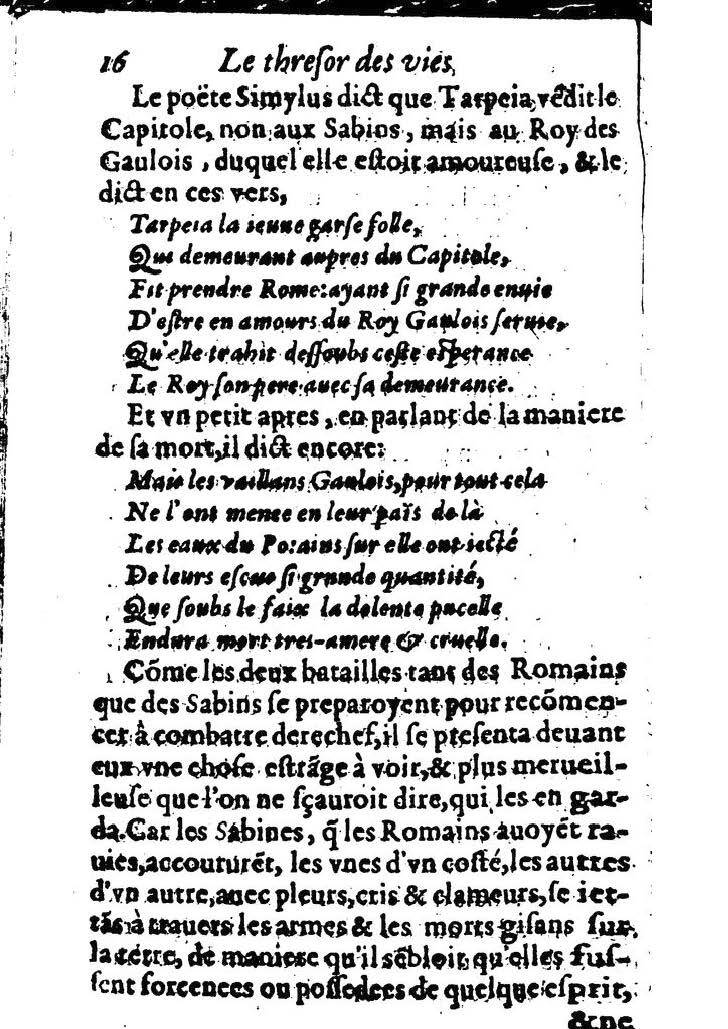 16 Le thresor des vies,
Le poëte Simylus dict que Tarpeia, vēdit le
Capitole, non aux Sabins, mais au Roy des
Gaulois, duquel elle estoit amoureuse, & le
dict en ces vers,
Tarpeia la ieune garse folle,
Qui demeurant aupres du Capitole,
Fit prendre Rome: ayant si grande enuie
D'estre en amours du Roy Gaulois seruie,
Qu'elle trahit dessoubs ceste esperance
Le Roy son pere auec sa demeurance.
Et vn petit apres, en parlant de la maniere
de sa mort, il dict encore:
Mais les vaillans Gaulois, pour tout cela
Ne l'ont menee en leur païs de là
Les eaux du Po: ains sur elle ont iecté
De leurs escus si grande quantité,
Que soubs le faix la dolente pucelle
Endura mort tres-amere & cruelle.
Cōme les deux batailles tant des Romains
que des Sabins se preparoyent pour recōmen-
cer à combatre derechef, il se presenta deuant
eux vne chose estrāge à voir, & plus merueil-
leuse que l'on ne sçauroit dire, qui les en gar-
da. Car les Sabines, q̄ les Romains auoyēt ra-
uies, accoururēt, les vnes d'vn costé, les autres
d'vn autre, auec pleurs, cris & clameurs, se iet-
tās à trauers les armes & les morts gisans sur
la terre, de maniere qu'il sēbloit qu'elles fus-
sent forcenees ou possedees de quelque esprit,
& ne